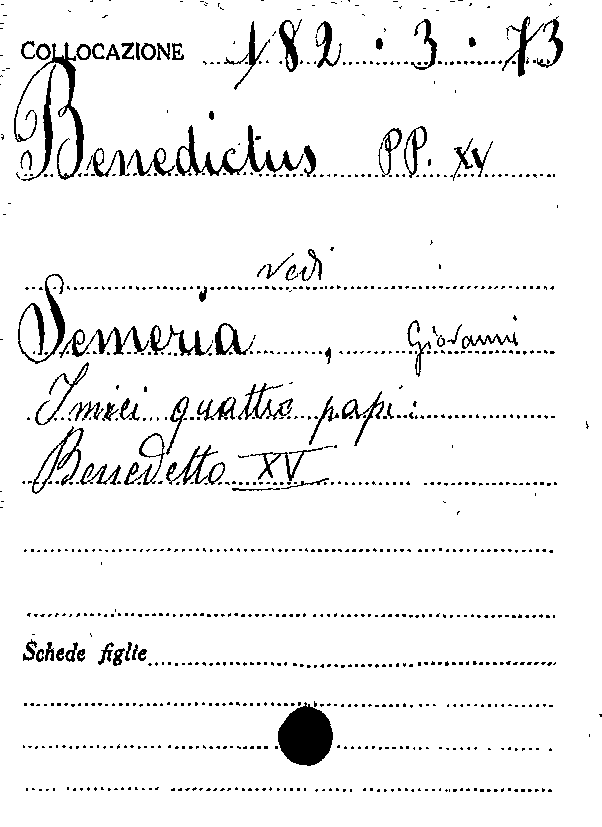 COLLOCAZIONE 182.3.73
Benedictus PP. XV
vedi
Semeria, Giovanni
I miei quattro papi:
Benedetto XV
Schede figlie